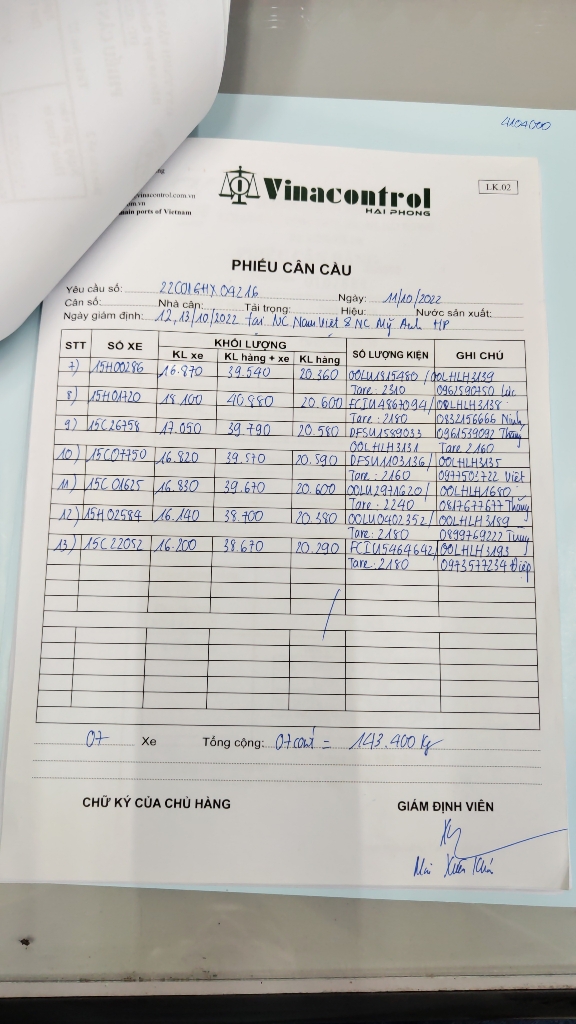 4104000
vinacontrol.com.vn
om.vn
main ports of Vietnam
Vinacontrol
HAI PHONG
LK.02
PHIẾU CÂN CẦU
Yêu cầu số: 22C01GHX04216 Ngày: 11/10/2022
Cân số: Nhà cân: Tải trọng: Hiệu: Nước sản xuất:
Ngày giám định: 12,13/10/2022 tại NC Nam Việt & NC Mỹ Anh HP
STT SỐ XE KHỐI LƯỢNG SỐ LƯỢNG KIỆN GHI CHÚ
KL xe KL hàng + xe KL hàng
7) 15H00286 16.870 39.540 20.360 OOLU1815480 / OOLHLH3139
Tare: 2310 0961590750 Lúc
8) 15H01720 18.100 40.880 20.600 FCIU4867094/ OOLHLH3138
Tare: 2180 0832156666 Ninh
9) 15C26758 17.050 39.790 20.580 DFSU1589033 0961539092 Thắng
OOLHLH3131 Tare 2160
10) 15C07750 16.820 39.570 20.590 DFSU1103136/ OOLHLH3135
Tare: 2160 0977502722 Việt
11) 15C01625 16.830 39.670 20.600 OOLU2971620/ OOLHLH1680
Tare: 2240 0817677677 Thắng
12) 15H02584 16.140 38.700 20.380 OOLU0402352/ OOLHLH3189
Tare: 2180 0899769222 Tùng
13) 15C22052 16.200 38.670 20.290 FCIU5464642/ OOLHLH3193
Tare: 2180 0973577234 Điệp
07 Xe Tổng cộng: 07 cont = 143.400 Kg
CHỮ KÝ CỦA CHỦ HÀNG GIÁM ĐỊNH VIÊN
Mai Xuân